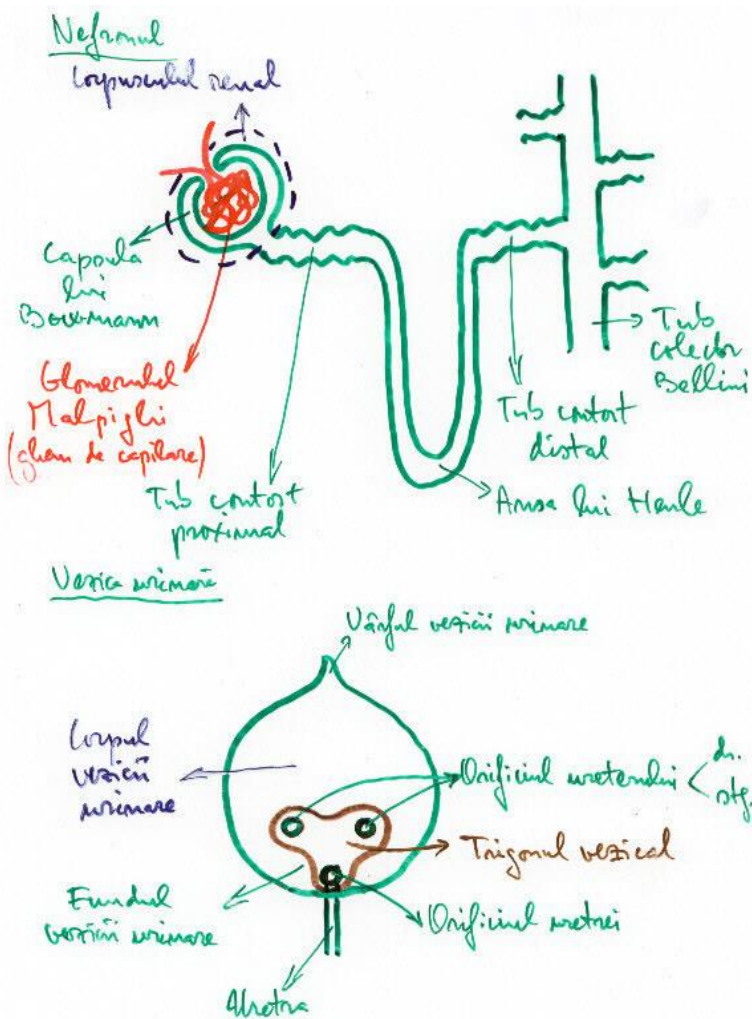 Nefronul
Corpusculul renal
Capsula
lui
Bowmann
Glomerulul
Malpighi
(ghem de capilare)
Tub contort
proximal
Tub contort
distal
Ansa lui Henle
Tub
colector
Bellini
Vezica urinară
Vârful vezicii urinare
Corpul
vezicii
urinare
Orificiul ureterului
dr.
stg.
Trigonul vezical
Fundul
vezicii urinare
Orificiul uretrei
Uretra